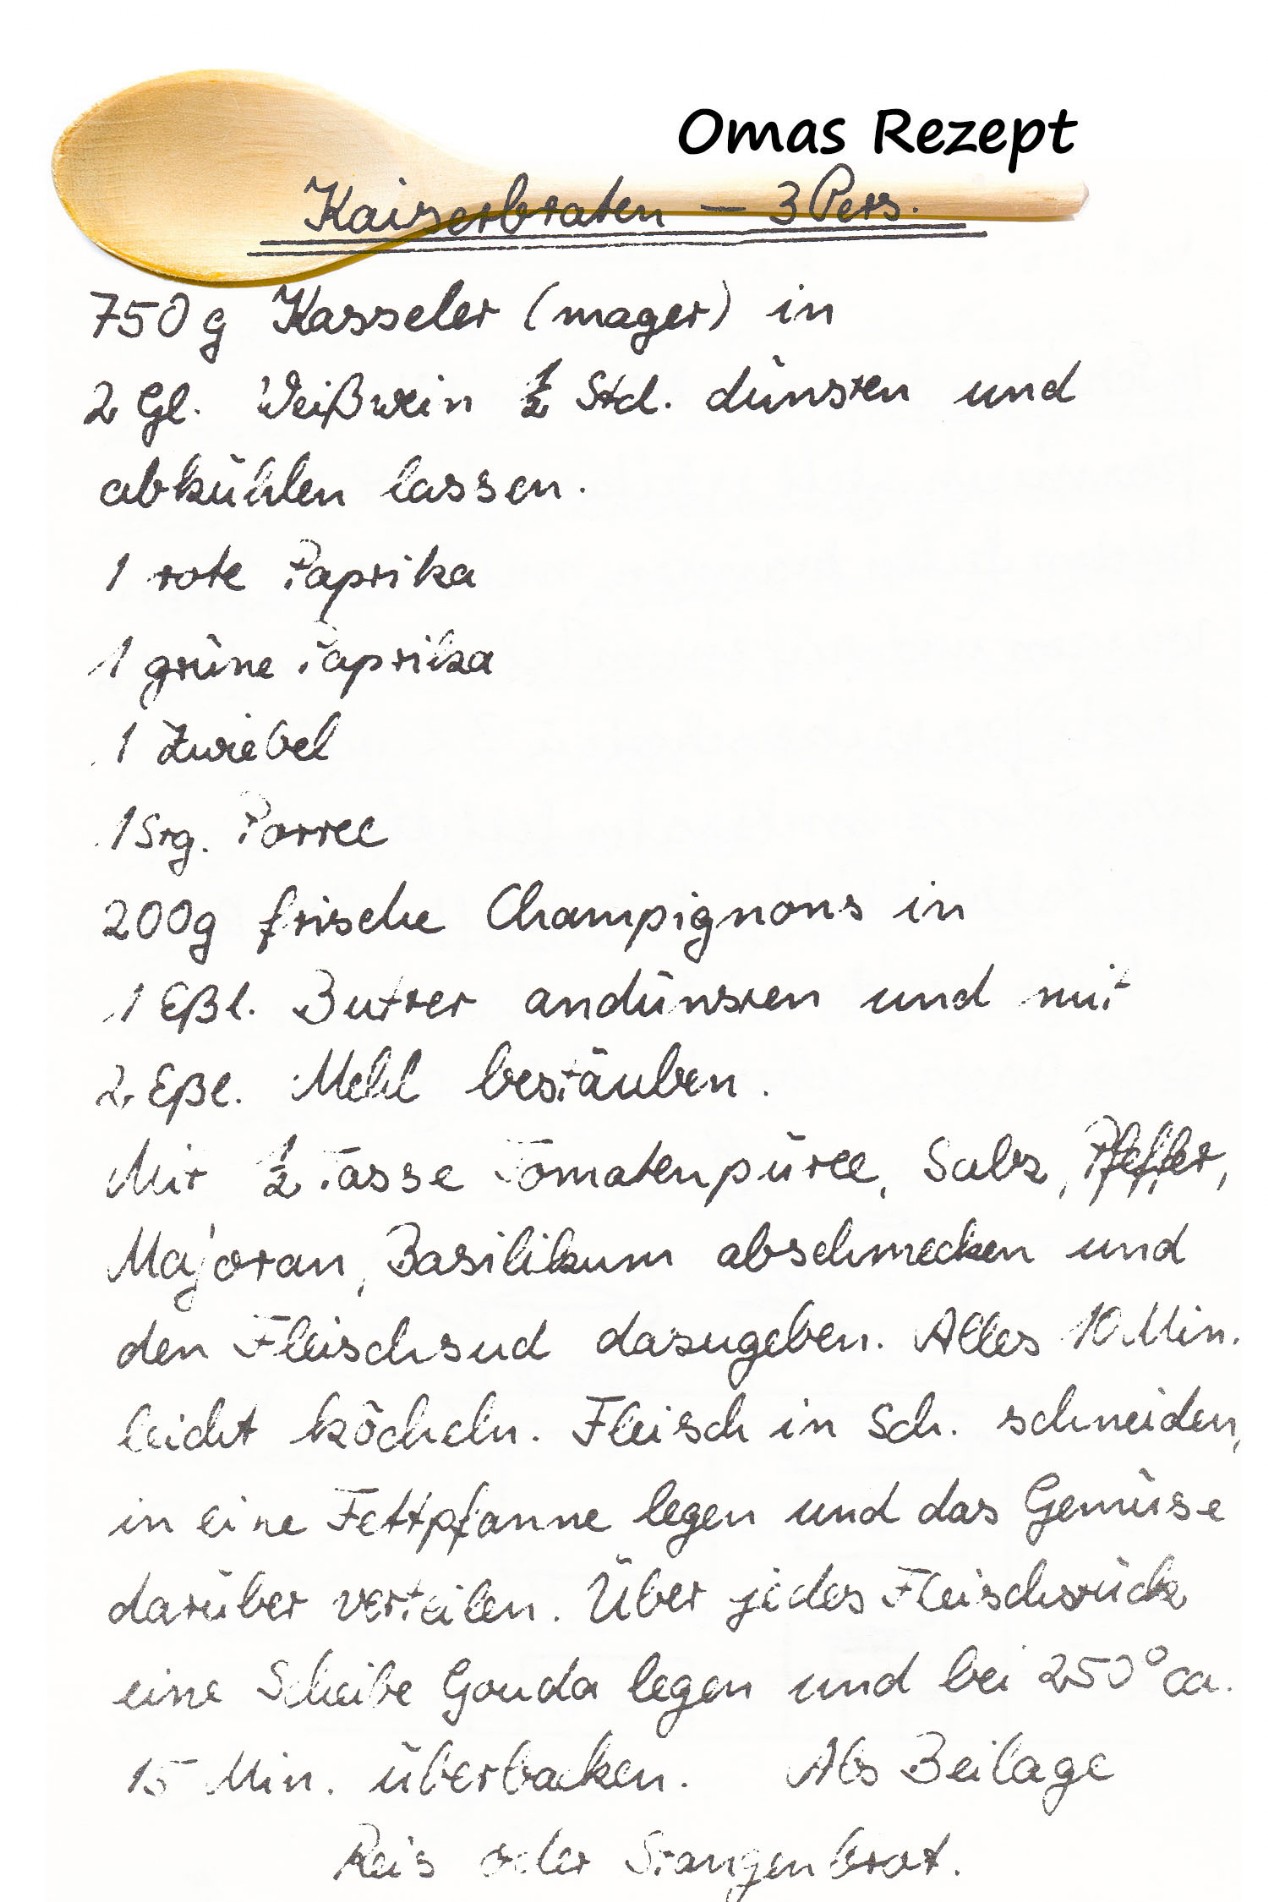 Omas Rezept
Kaiserbraten - 3 Pers.
750 g Kasseler (mager) in
2 Gl. Weißwein ½ Std. dünsten und
abkühlen lassen.
1 rote Paprika
1 grüne Paprika
1 Zwiebel
1 Stg. Porree
200g frische Champignons in
1 Eßl. Butter andünsten und mit
2 Eßl. Mehl bestäuben.
Mit ½ Tasse Tomatenpüree, Salz, Pfeffer,
Majoran, Basilikum abschmecken und
den Fleischsud dazugeben. Alles 10 Min.
leicht köcheln. Fleisch in Sch. schneiden,
in eine Fettpfanne legen und das Gemüse
darüber verteilen. Über jedes Fleischstück
eine Scheibe Gouda legen und bei 250° ca.
15 Min. überbacken. Als Beilage
Reis oder Stangenbrot.